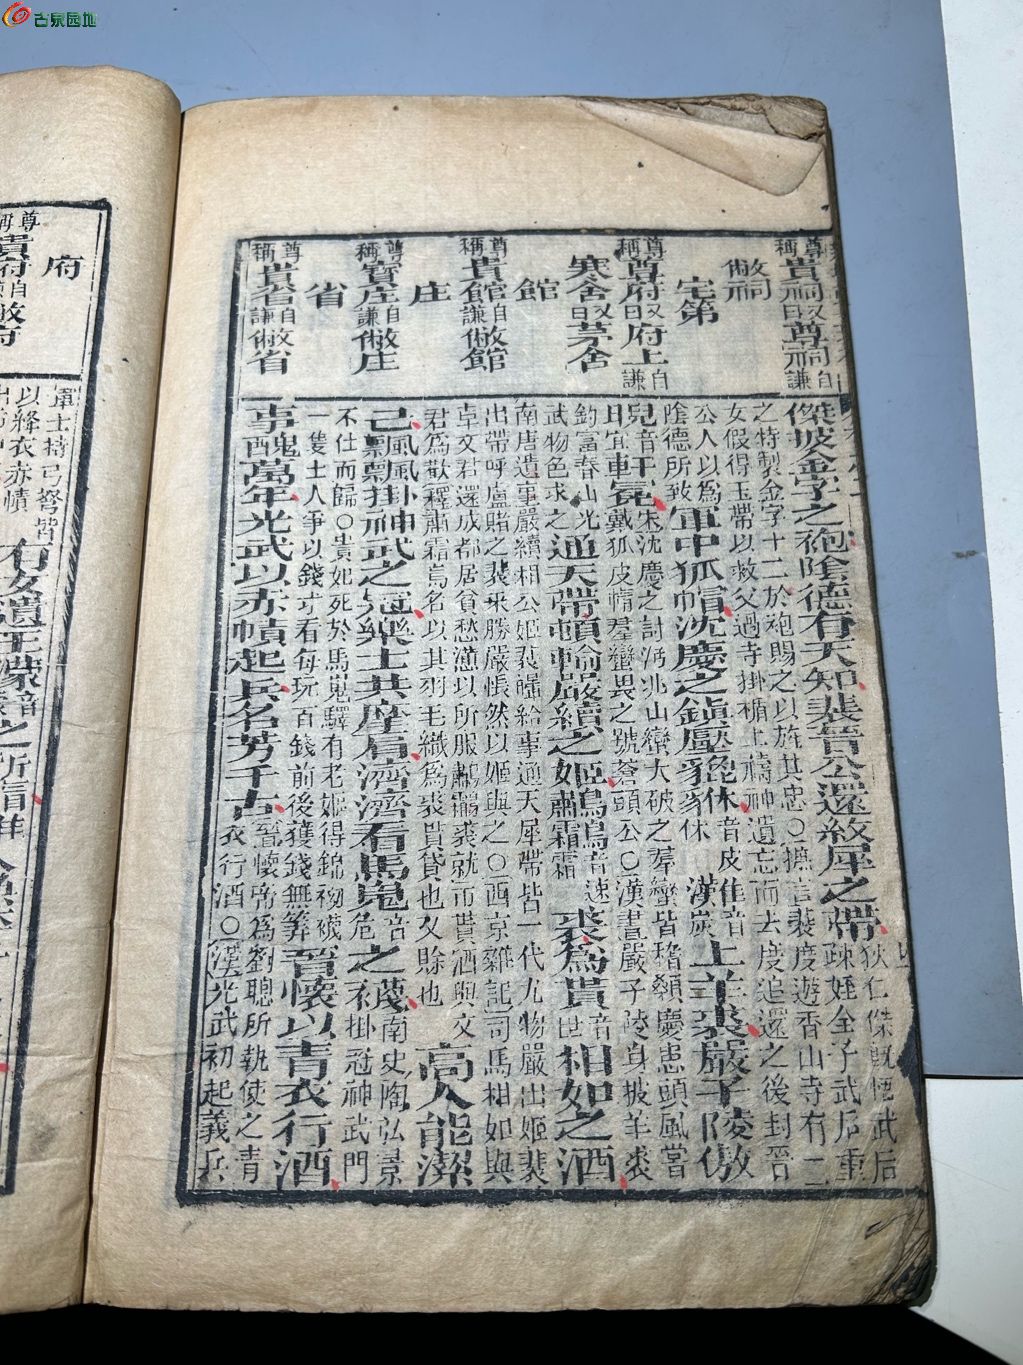 古泉园地
尊稱貴祠又曰尊祠自謙
敝祠
宅第
尊稱尊府又曰府上自謙
寒舍又曰茅舍
館
尊稱貴館自謙敝館
庄
尊稱寶庄自謙敝庄
省
尊稱貴省自謙敝省
傑披金字之袍陰德有天知裴晉公還絡犀之帶狄仁傑既悟武后
疎姪全子武后重
之特製金字十二於袍賜之以旌其忠○摭言裴度遊香山寺有二
女假得玉帶以救父過寺掛楯上禱神遺忘而去度追還之後封晉
公人以為
陰德所致軍中狐帽沈慶之鎮壓貔貅音皮休漢炭上羊裘嚴子陵傲
兒音軒冕宋沈慶之討沔北山蠻大破之羣蠻皆稽顙慶患頭風嘗
戴狐皮帽羣蠻畏之號蒼頭公○漢書嚴子陵身披羊裘
釣富春山光
武物色求之通天帶頓輸嚴續之姬鷫鸘音速霜裘為貰音世相如之酒
南唐遺事嚴續相公姬裴皞給事通天犀帶皆一代尤物嚴出姬裴
出帶呼盧賭之裴釆勝嚴悵然以姬與之○西京雜記司馬相如與
卓文君還成都居貧愁懣以所服鷫鸘裘就市貰酒與文
君為歡釋鷫霜鳥名以其羽毛織為裘貰貸也又賒也高人能潔
己飄飄掛神武之冠樂士共摩肩濟濟看馬嵬音危之襪南史陶弘景
衣掛冠神武門
不仕而歸○貴妃死於馬嵬驛有老姬得錦袎襪
一隻士人爭以錢寸看每玩一百錢前後獲錢無筭晉懷以青衣行酒
事醜萬年光武以赤幘起兵名芳千古晉懷帝為劉聰所執使之青
衣行酒○漢光武初起義兵
府
尊稱貴府自謙敝府
軍士持弓弩皆
以絳衣赤幘